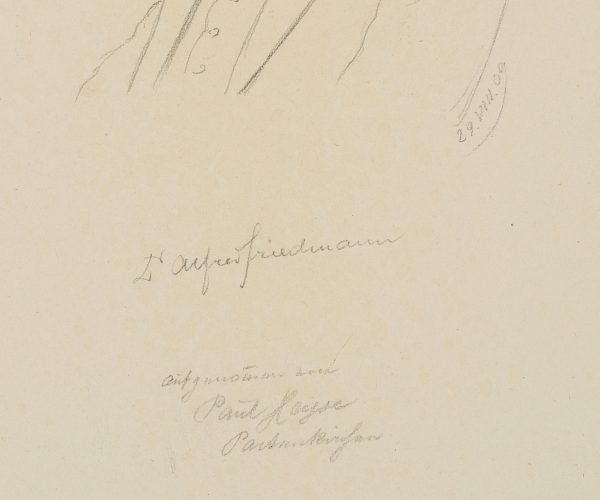 29.VIII.09
Dr Alfred Friedmann
aufgenom̄en von
Paul Heyse
Partenkirchen